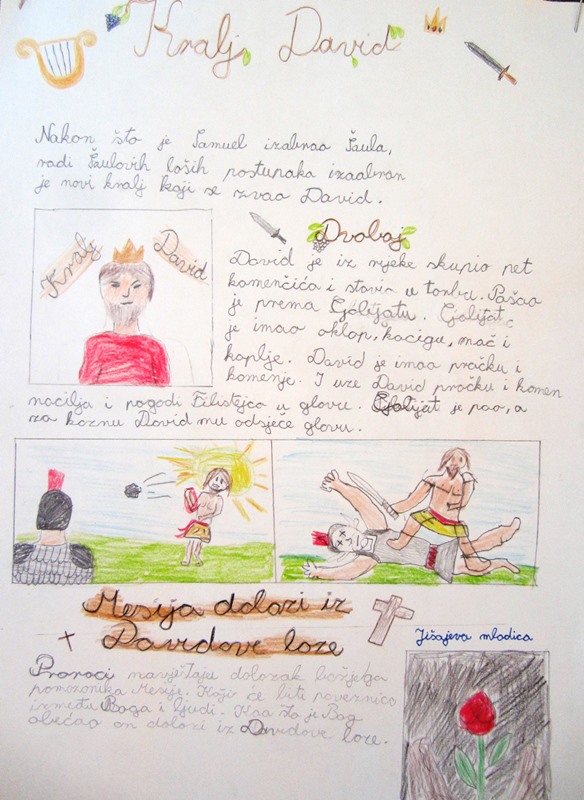 Kralj David
Nakon što je Samuel izabrao Šaula,
radi Šaulovih loših postupaka izaabran
je novi kralj koji se zvao David.
Kralj
David
Dvoboj
David je iz rijeke skupio pet
kamenčića i stavio u torbu. Pošao
je prema Golijatu. Golijat
je imao oklop, kacigu, mač i
koplje. David je imao pračku i
kamenje. I uze David pračku i kamen
nacilja i pogodi Filistejca u glavu. Golijat je pao, a
za kaznu David mu odsječe glavu.
Mesija dolazi iz
Davidove loze
Jišajeva mladica
Proroci navještaju dolazak božjega
pomazanika Mesije. Koji će biti poveznica
između Boga i ljudi. Kao što je Bog
obećao on dolazi iz Davidove loze.